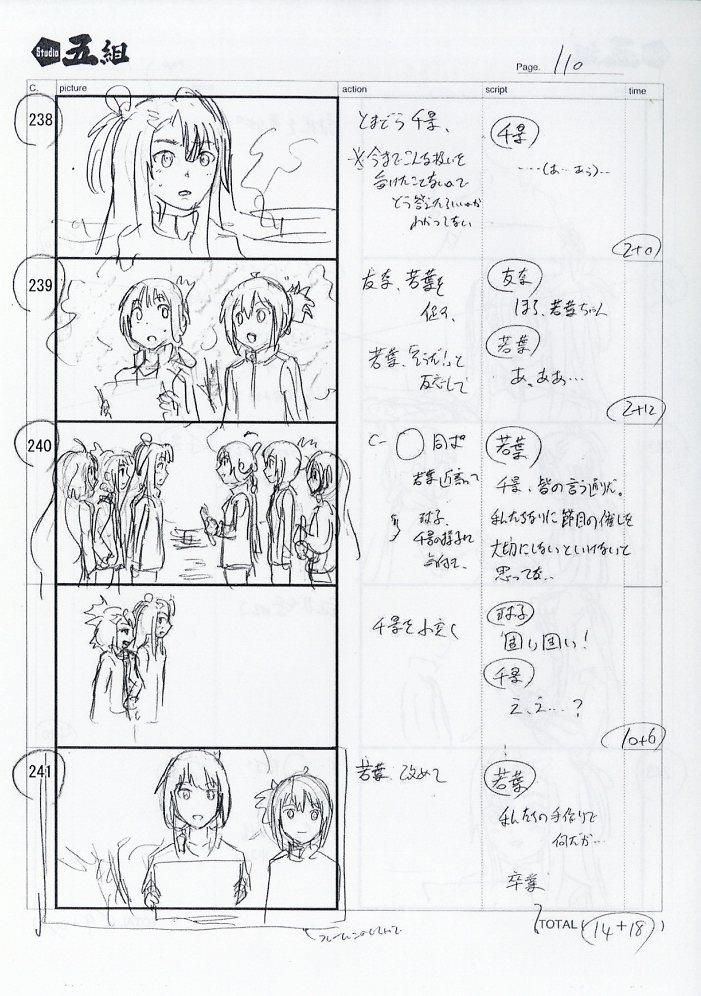 Studio 五組
Page. 110
C. picture action script time
238
とまどう千景、
※今までこんな扱いを
受けたことないので
どう答えたらいいのか
わかってない
千景
……(あ…あぅ)…
2+0
239
友奈、若葉を
促す、
若葉、「そうだ!」と
反応して
友奈
ほら、若葉ちゃん
若葉
あ、ああ…
2+12
240
C- 同ポ
若葉近寄って
球子、
千景の様子に
気付いて、
若葉
千景、皆の言う通りだ。
私たちなりに節目の催しを
大切にしないといけないと
思ってな…
千景を小突く
球子
固い固い!
千景
え、え…?
10+6
241
若葉、改めて
若葉
私たちの手作りで
何だが…
卒業
TOTAL (14+18)